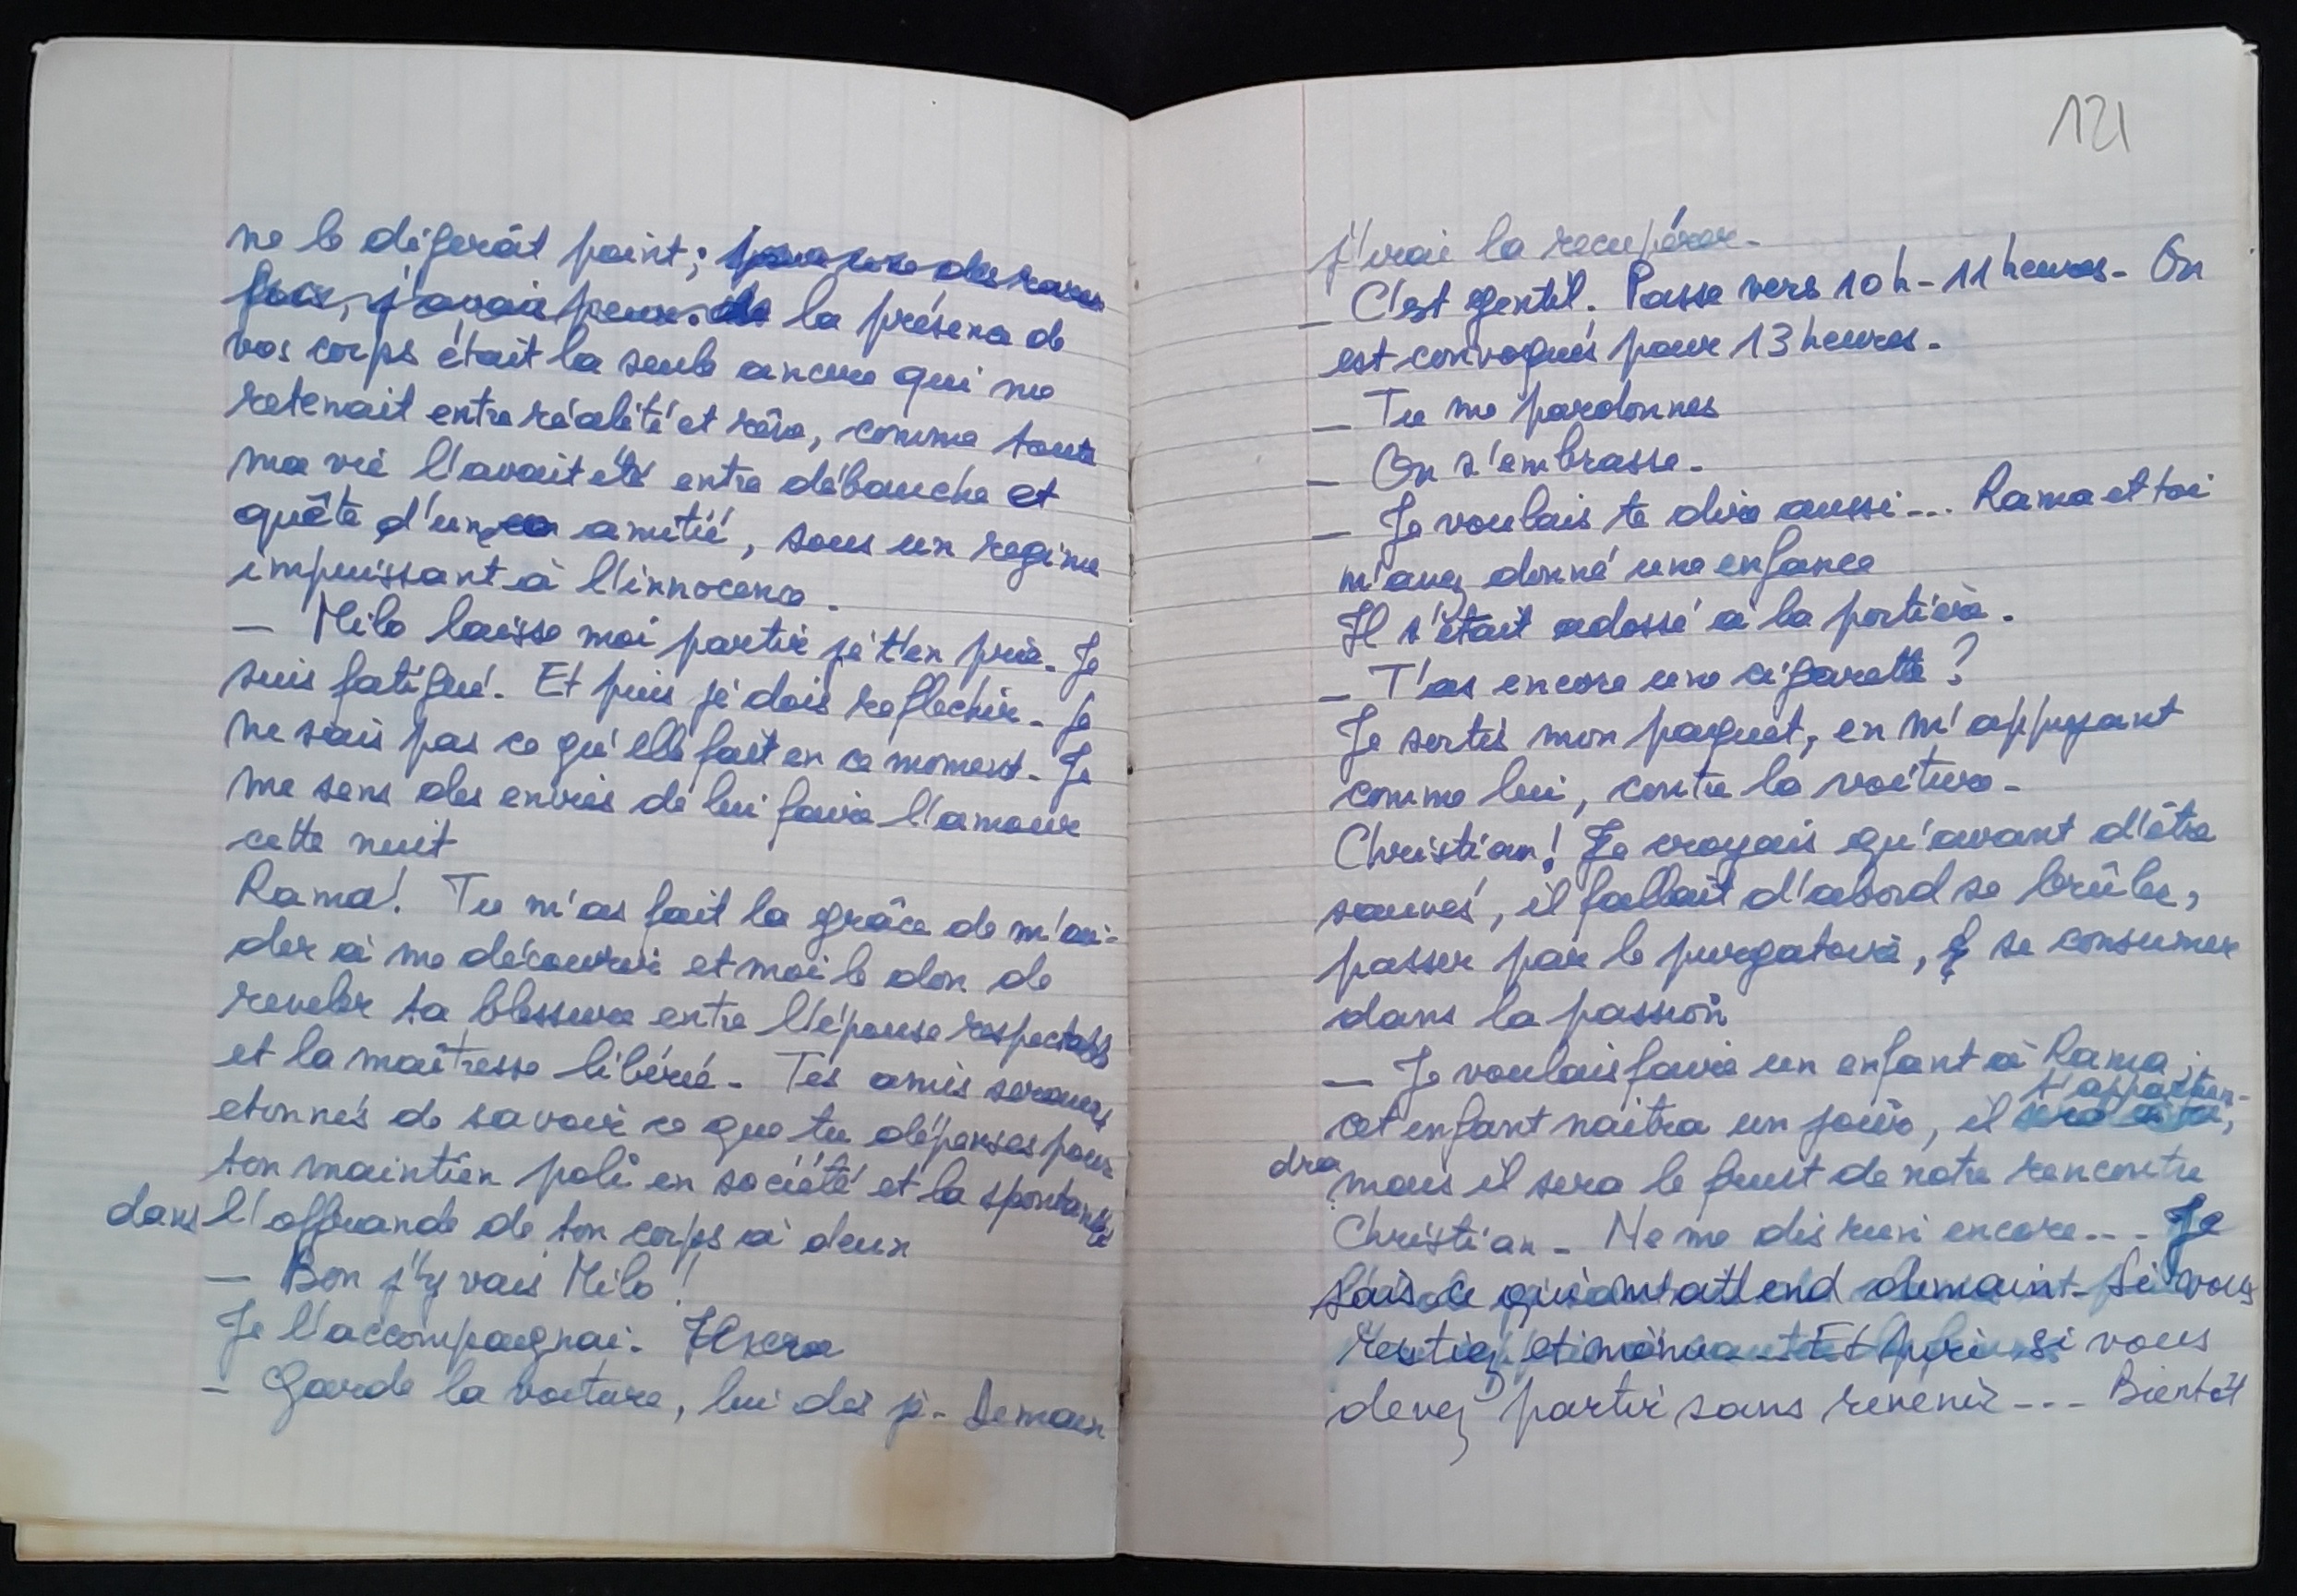 ne le digerât point; pour une des rares
fois, j'avais peur. la présence de
vos corps était la seule ancre qui me
retenait entre réalité et rêve, comme toute
ma vie l'avait été entre débauche et
quête d'une amitié, sous un regime
impuissant à l'innocence.
– Milo laisse moi partir je t'en prie. Je
suis fatigué. Et puis je dois reflechir. Je
ne sais pas ce qu'elle fait en ce moment. Je
me sens des envies de lui faire l'amour
cette nuit
Rama! Tu m'as fait la grâce de m'ai-
der à me découvrir et moi le don de
reveler ta blessure entre l'épouse respectable
et la maîtresse libérée. Tes amis seraient
etonnés de savoir ce que tu dépenses pour
ton maintien poli en société et la spontanéité
dans l'offrande de ton corps à deux
– Bon j'y vais Milo!
Je l'accompagnai.
– Garde la voiture, lui dis je. Demain
121
j'irai la recupérer.
– C'est gentil. Passe vers 10h-11heures. On
est convoqués pour 13heures.
– Tu me pardonnes
– On s'embrasse.
– Je voulais te dire aussi... Rama et toi
m'avez donné une enfance
Il s'était adossé à la portière.
– T'as encore une cigarette?
Je sortis mon paquet, en m'appuyant
comme lui, contre la voiture.
Christian! Je croyais qu'avant d'être
sauvés, il fallait d'abord se brûler,
passer par le purgatoire, se consumer
dans la passion
– Je voulais faire un enfant à Rama;
t'appartien-
cet enfant naitra un jour, il sera à toi,
dra
mais il sera le fruit de notre rencontre
Christian. Ne me dis rien encore... Je
sais ce qui m'attend demain. Si vous
restiez Et puis si vous
devez partir sans revenir... Bientôt